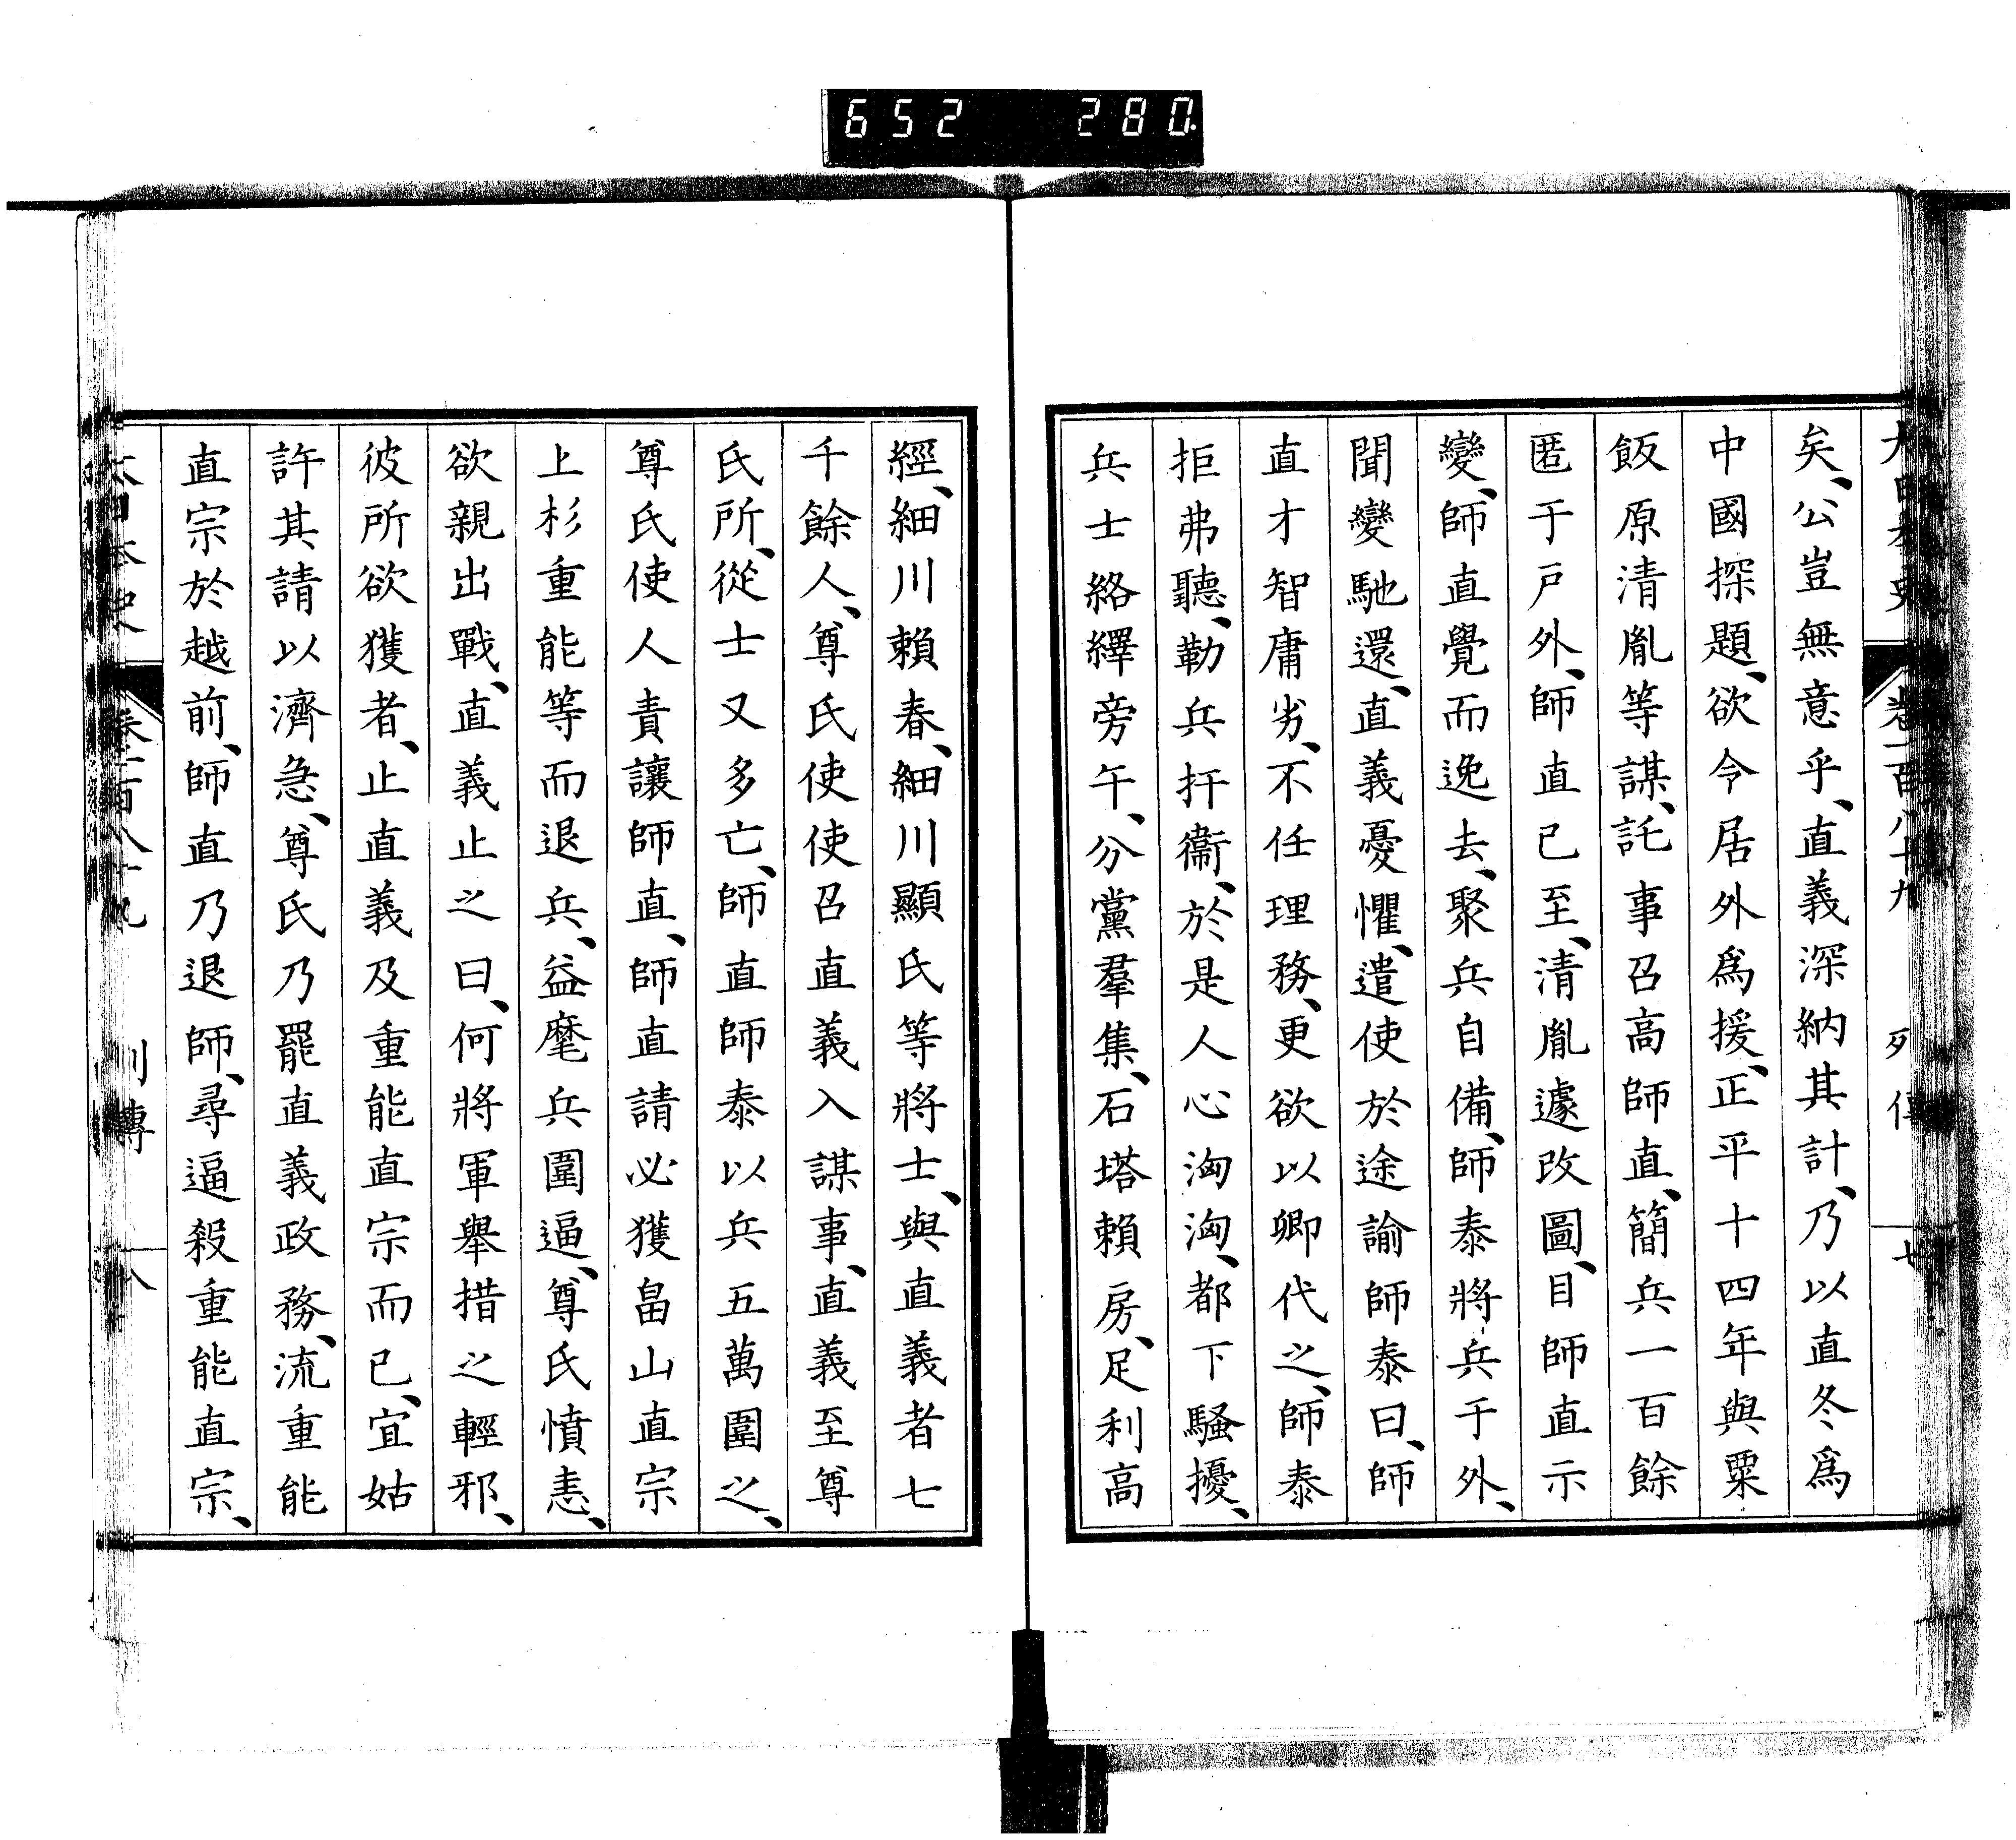 652 280.
大日本史 卷一百八十九 列傳 七
矣、公豈無意乎、直義深納其計、乃以直冬爲
中國探題、欲令居外爲援、正平十四年與粟
飯原清胤等謀、託事召高師直、簡兵一百餘
匿于戸外、師直已至、清胤遽改圖、目師直示
變、師直覺而逸去、聚兵自備、師泰將兵于外、
聞變馳還、直義憂懼、遣使於途諭師泰曰、師
直才智庸劣、不任理務、更欲以卿代之、師泰
拒弗聽、勒兵扞衞、於是人心洶洶、都下騷擾、
兵士絡繹旁午、分黨羣集、石塔賴房、足利高
經、細川賴春、細川顯氏等將士、與直義者七
千餘人、尊氏使使召直義入謀事、直義至尊
氏所、從士又多亡、師直師泰以兵五萬圍之、
尊氏使人責讓師直、師直請必獲畠山直宗
上杉重能等而退兵、益麾兵圍逼、尊氏憤恚、
欲親出戰、直義止之曰、何將軍舉措之輕邪、
彼所欲獲者、止直義及重能直宗而已、宜姑
許其請以濟急、尊氏乃罷直義政務、流重能
直宗於越前、師直乃退師、尋逼殺重能直宗、
大日本史 卷一百八十九 列傳 八